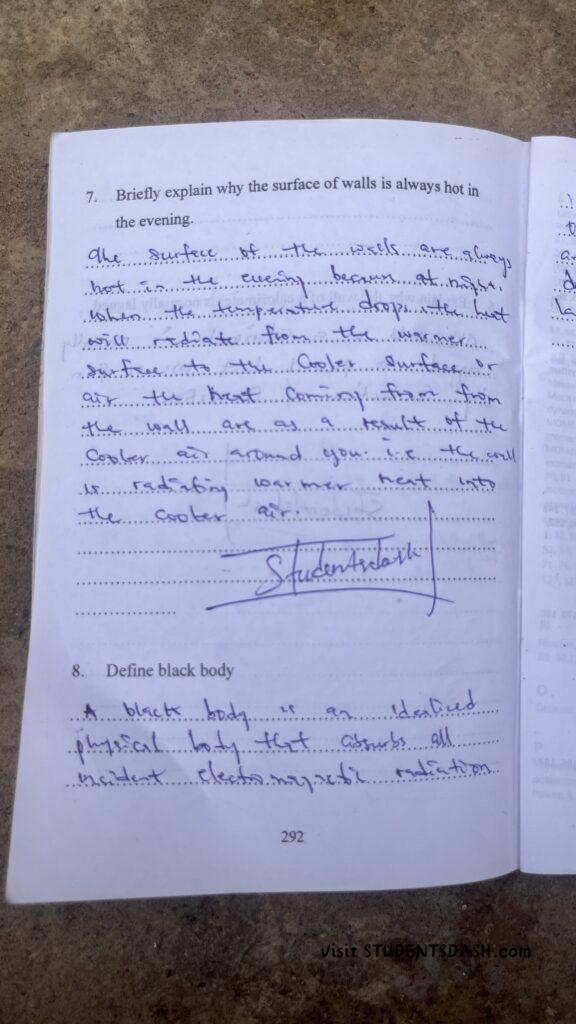 7. Briefly explain why the surface of walls is always hot in
the evening.
The surface of the walls are always
hot in the evening because at night.
When the temperature drops the heat
will radiate from the warmer
surface to the cooler surface or
air the heat coming from from
the wall are as a result of the
cooler air around you. i.e the wall
is radiating warmer heat into
the cooler air.
Studentsdash
8. Define black body
A black body is an idealized
physical body that absorbs all
incident electromagnetic radiation
292
Visit STUDENTSDASH.com